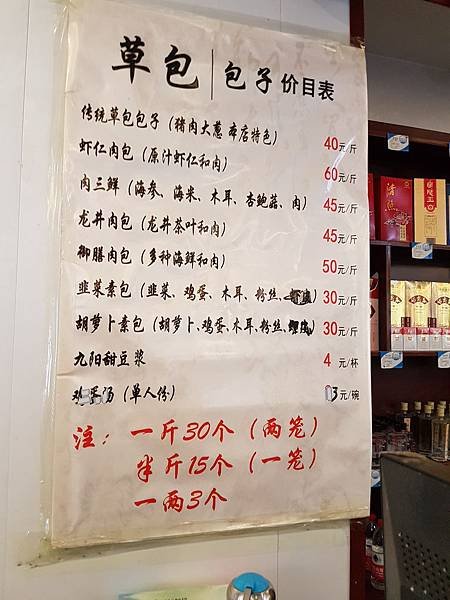 草包 | 包子价目表
传统草包包子（猪肉大葱 本店特色） 40元/斤
虾仁肉包（原汁虾仁和肉） 60元/斤
肉三鲜（海参、海米、木耳、杏鲍菇、肉） 45元/斤
龙井肉包（龙井茶叶和肉） 45元/斤
御膳肉包（多种海鲜和肉） 50元/斤
韭菜素包（韭菜、鸡蛋、木耳、粉丝、） 30元/斤
胡萝卜素包（胡萝卜、鸡蛋、木耳、粉丝、） 30元/斤
九阳甜豆浆 4 元/杯
鸡蛋汤（单人份） 3元/碗
注：一斤30个（两笼）
半斤15个（一笼）
一两3个